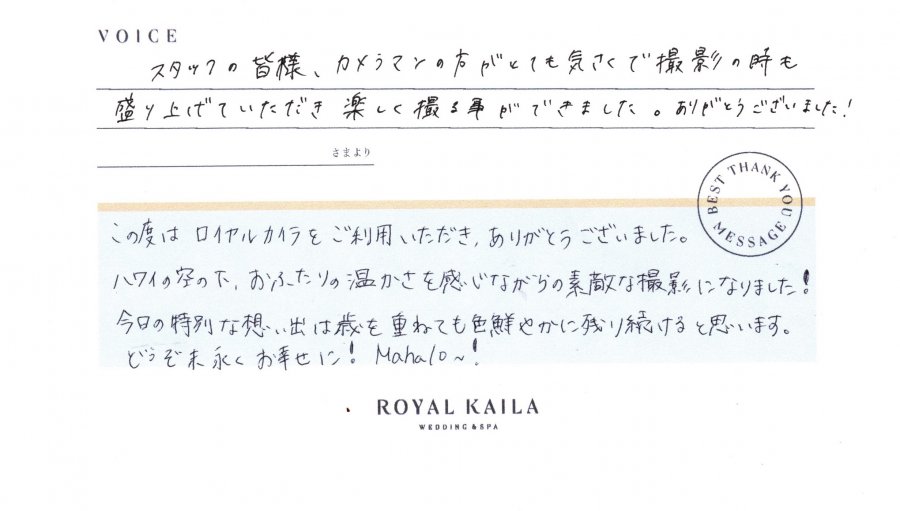 VOICE
スタッフの皆様、カメラマンの方がとても気さくで撮影の時も
盛り上げていただき楽しく撮る事ができました。ありがとうございました!
さまより
BEST THANK YOU MESSAGE
この度はロイヤルカイラをご利用いただき、ありがとうございました。
ハワイの空の下、おふたりの温かさを感じながらの素敵な撮影になりました!
今日の特別な想い出は歳を重ねても色鮮やかに残り続けると思います。
どうぞ末永くお幸せに! Mahalo~!
ROYAL KAILA
WEDDING & SPA